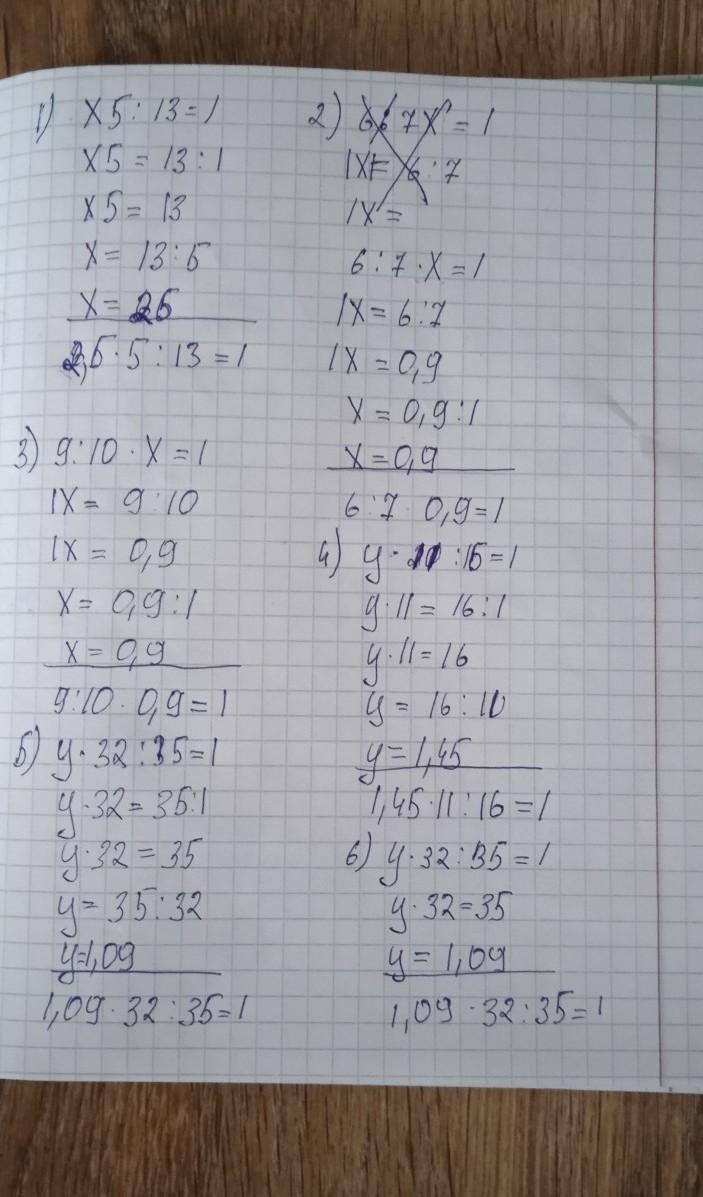 1) x5:13=1
x5=13:1
x5=13
x=13:5
x=26
2,6·5:13=1
2) 6:7x=1
1x=6:7
1x=
6:7·x=1
1x=6:7
1x=0,9
x=0,9:1
x=0,9
6:7·0,9=1
3) 9:10·x=1
1x=9:10
1x=0,9
x=0,9:1
x=0,9
9:10·0,9=1
4) y·11:16=1
y·11=16:1
y·11=16
y=16:11
y=1,45
1,45·11:16=1
5) y·32:35=1
y·32=35:1
y·32=35
y=35:32
y=1,09
1,09·32:35=1
6) y·32:35=1
y·32=35
y=1,09
1,09·32:35=1